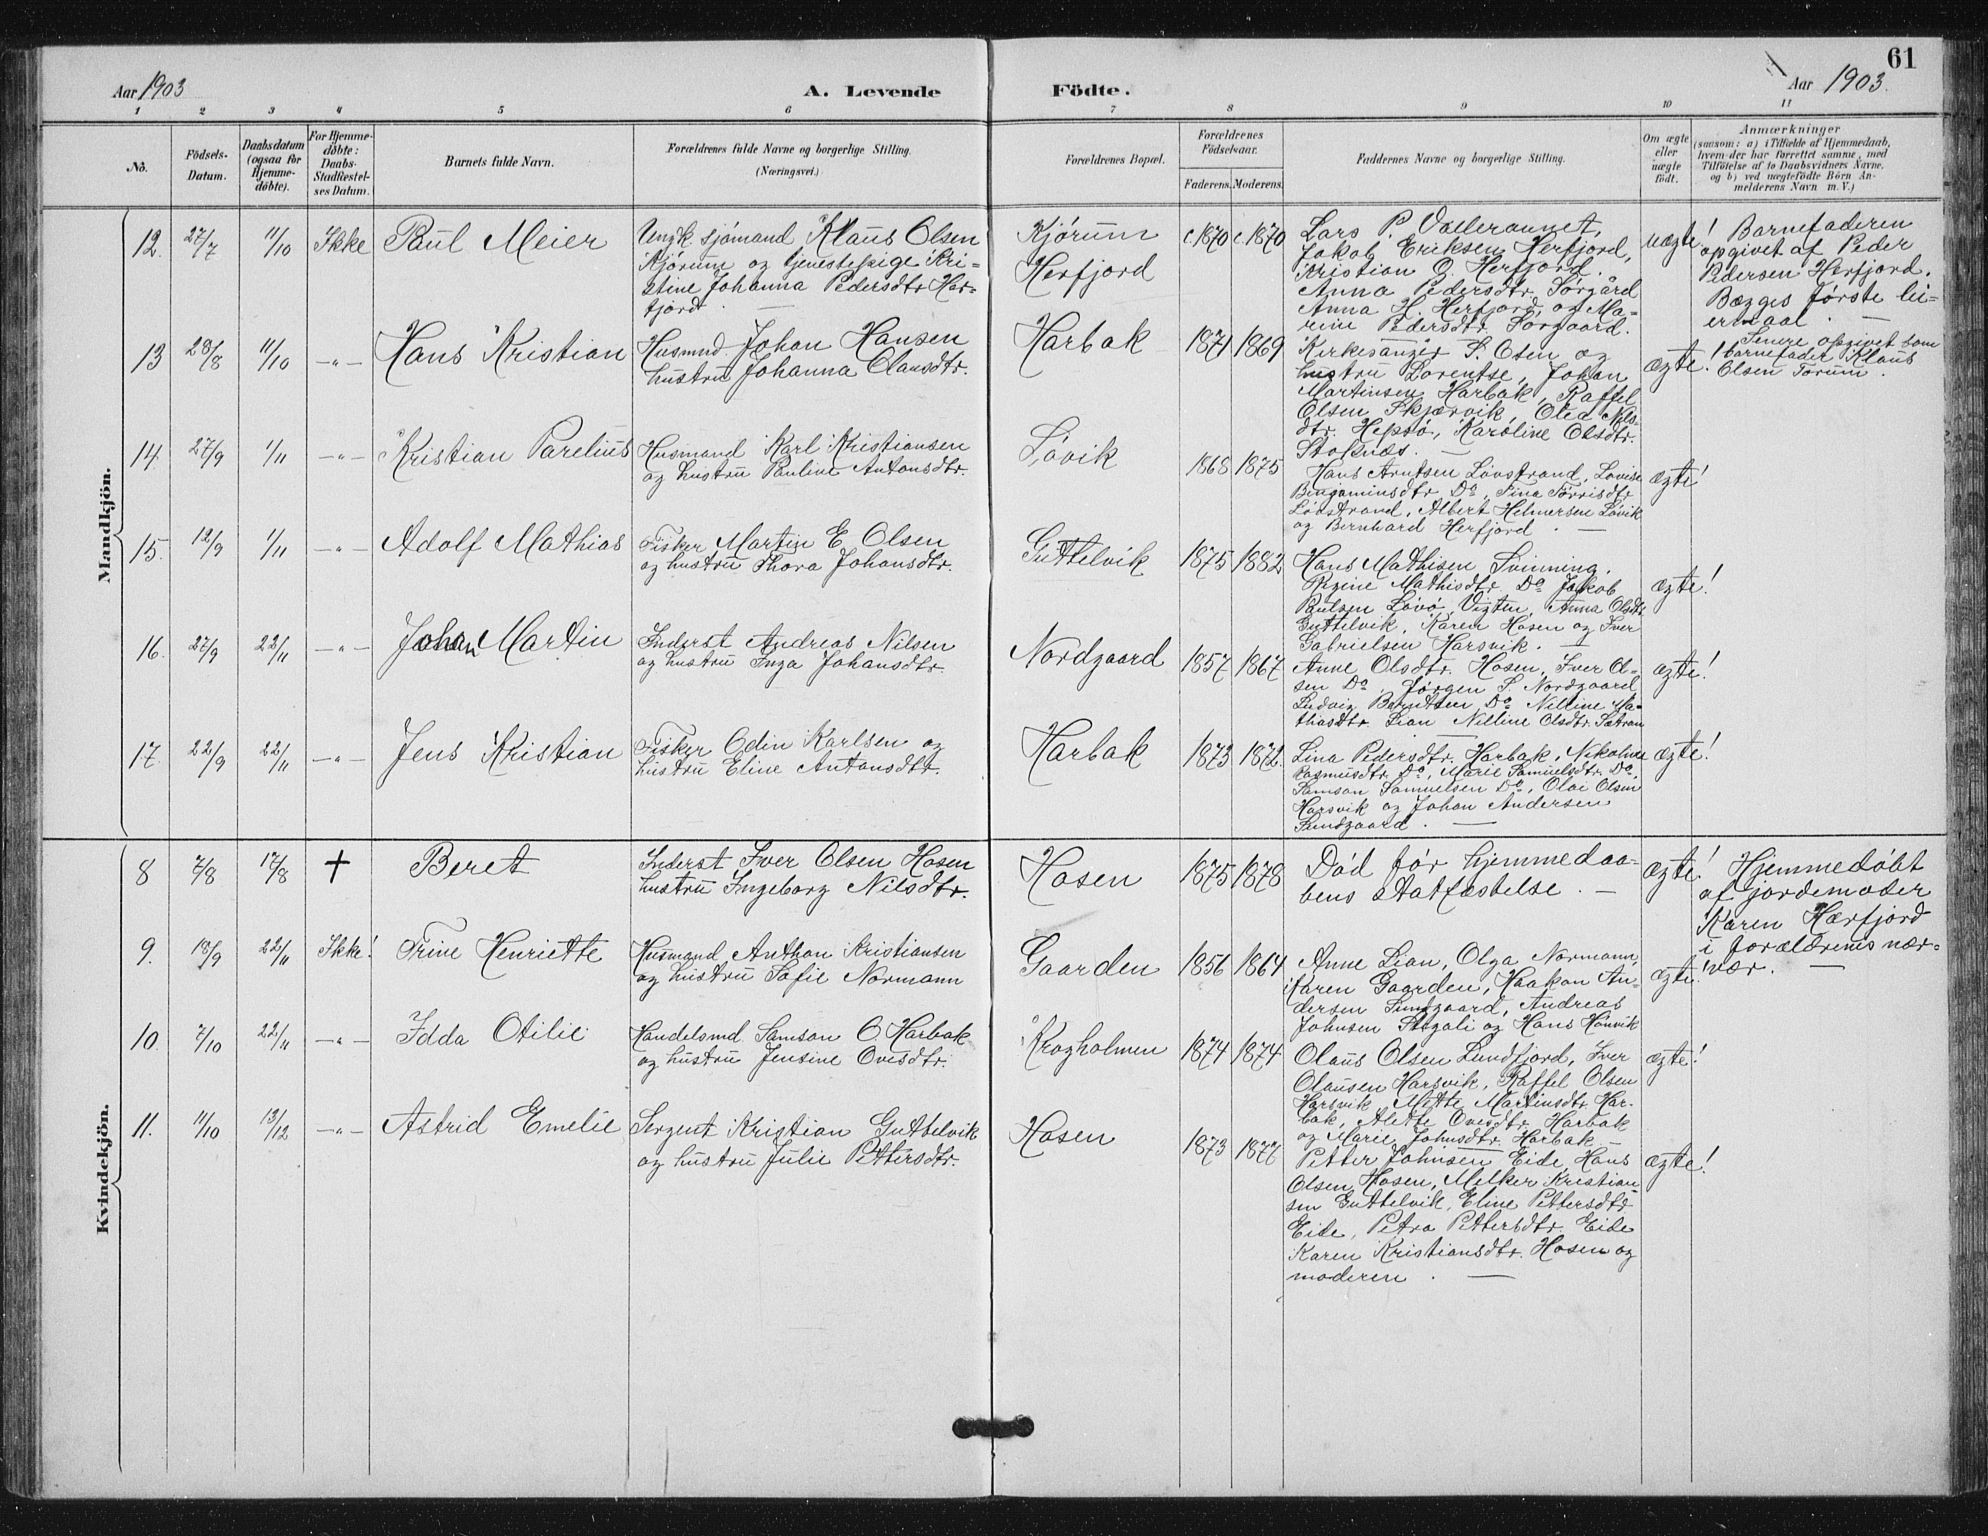 61
Aar 1903
A. Levende
Födte.
Aar 1903.
1 2 3 4 5 6 7 8 9 10 11
No.
Födsels-
Datum.
Daabsdatum
(ogsaa for
Hjemme-
døbte).
For Hjemme-
døbte:
Daabs-
Stadfæstel-
ses Datum.
Barnets fulde Navn.
Forældrenes fulde Navne og borgerlige Stilling.
(Næringsvei.)
Forældrenes Bopæl.
Forældrenes
Fødselsaar.
Faderens. Moderens.
Faddernes Navne og borgerlige Stilling.
Om ægte
eller
uægte
født.
Anmærkninger
(saasom: a) i Tilfælde af Hjemmedaab,
hvem der har forrettet samme, med
Tilføielse af to Daabsvidners Navne.
og b) ved uægtefødte Börn An-
melderens Navn m. V.)
Mandkjön.
12. 27/7 11/10 Ikke Paul Meier
Ungk. sjömand Klaus Olsen
Kjörum og tjenestepige Kri-
stine Johanna Pedersdtr. Har-
fjord.
Kjörum
Herfjord
c. 1870 c. 1870
Lars P. Valleraunet,
Jakob Eriksen Herfjord,
Kristian O. Herfjord.
Anna Pedersdtr. Sørgård
Anna H. Herfjord, og Ma-
rine Pedersdtr. Sørgaard.
uægte!
Barnefaderen
opgivet af Peder
Pedersen Herfjord.
Begges første lei-
ermaal. —
Senere opgivet som
barnefader Klaus
Olsen Torum.
13 28/8 11/10 —"— Hans Kristian
Husmnd Johan Hansen
hustru Johanna Olausdtr.
Harbak
1871 1869
Kirkesanger S. Osen og
hustru Lorentse, Johan
Martinsen Harbak, Raffel
Olsen Skjærvik, Olea Nils-
dtr. Hepsö, Karoline Olsdtr.
Stoknæs. —
ægte!
14. 27/9 1/11 —"— Kristian Parelius
Husmand Karl Kristiansen
og hustru Pauline Antonsdtr.
Lövik
1868 1875
Hans Arntsen Lövstrand, Lovise
Bengaminsdtr. Do, Tina Torrisdtr.
Lövstrand, Albert Helmersen Lövik
og Bernhard Herfjord. —
ægte!
15. 12/9 1/11 —"— Adolf Mathias
Fisker Martin E. Olsen
og hustru Thora Johansdtr.
Guttelvik
1875 1882
Hans Mathisen Svinning.
Regine Mathisdtr. Do Jakob
Paulsen Lövö, Vigten, Anna Olsdtr.
Guttelvik, Karen Hosen og Iver
Gabrielsen Harsvik. —
ægte!
16. 27/9 22/11 —"— Johan Martin
Inderst Andreas Nilsen
og hustru Inga Johansdtr.
Nordgaard
1857 1867
Anne Olsdtr. Hosen, Iver Ol-
sen Do, Jørgen S. Nordgaard
Ludvig Berntsen Do Nilline Ma-
thiasdtr. Lian Nilline Olsdtr. Sætran
ægte!
17. 22/9 22/11 —"— Jens Kristian
Fisker Odin Karlsen og
hustru Eline Antonsdtr.
Harbak
1873 1872.
Lina Pedersdtr. Harbak, Nikoline
Rasmusdtr. Do, Marie Samuelsdtr. Do,
Samson Samuelsen Do, Olai Olsen
Harsvik og Johan Andersen
Sundgaard. —
ægte!
Kvindekjön.
8 7/8 17/8 + Beret
Inderst Iver Olsen Hosen
hustru Ingeborg Nilsdtr.
Hosen
1875 1878
Död før hjemmedaa-
bens statfæstelse. —
ægte!
Hjemmedöbt
af jordemoder
Karen Hærfjord
i forælrenes nær-
vær. —
9. 18/9 22/11 Ikke! Trine Henriette
Husmand Anthon Kristiansen
og hustru Sofie Normann
Gaarden
1856 1864
Anne Lian, Olga Normann,
Karen Gaarden, Haakon An-
dersen Sundgaard, Andreas
Johnsen Stigali og Hans Hönvik
ægte!
10. 7/10 22/11 —"— Idda Otilie
Handelsmd Samson O. Harbak
og hustru Jensine Ovesdtr.
Kragholmen
1874 1874
Olaus Olsen Lundfjord, Iver
Olausen Harsvik, Raffel Olsen
Harsvik Mette Martinsdtr. Har-
bak, Alette Ovesdtr. Harbak
og Marie Johnsdtr. Harbak —
ægte!
11. 11/10 13/12 —"— Astrid Emelie
Sergent Kristian Guttelvik
og hustru Julie Pettersdtr.
Hosen
1873 1877
Petter Johnsen Eide, Hans
Olsen Hosen, Melker Kristian-
sen Guttelvik, Eline Pettersdtr.
Eide, Petra Pettersdtr. Eide
Karen Kristiansdtr. Hosen og
moderen. —
ægte!